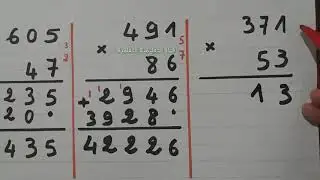 605
3
2
47
235
20•
435
491
5
7
× 86
1 1
+2946
3928•
42226
371
× 53
13